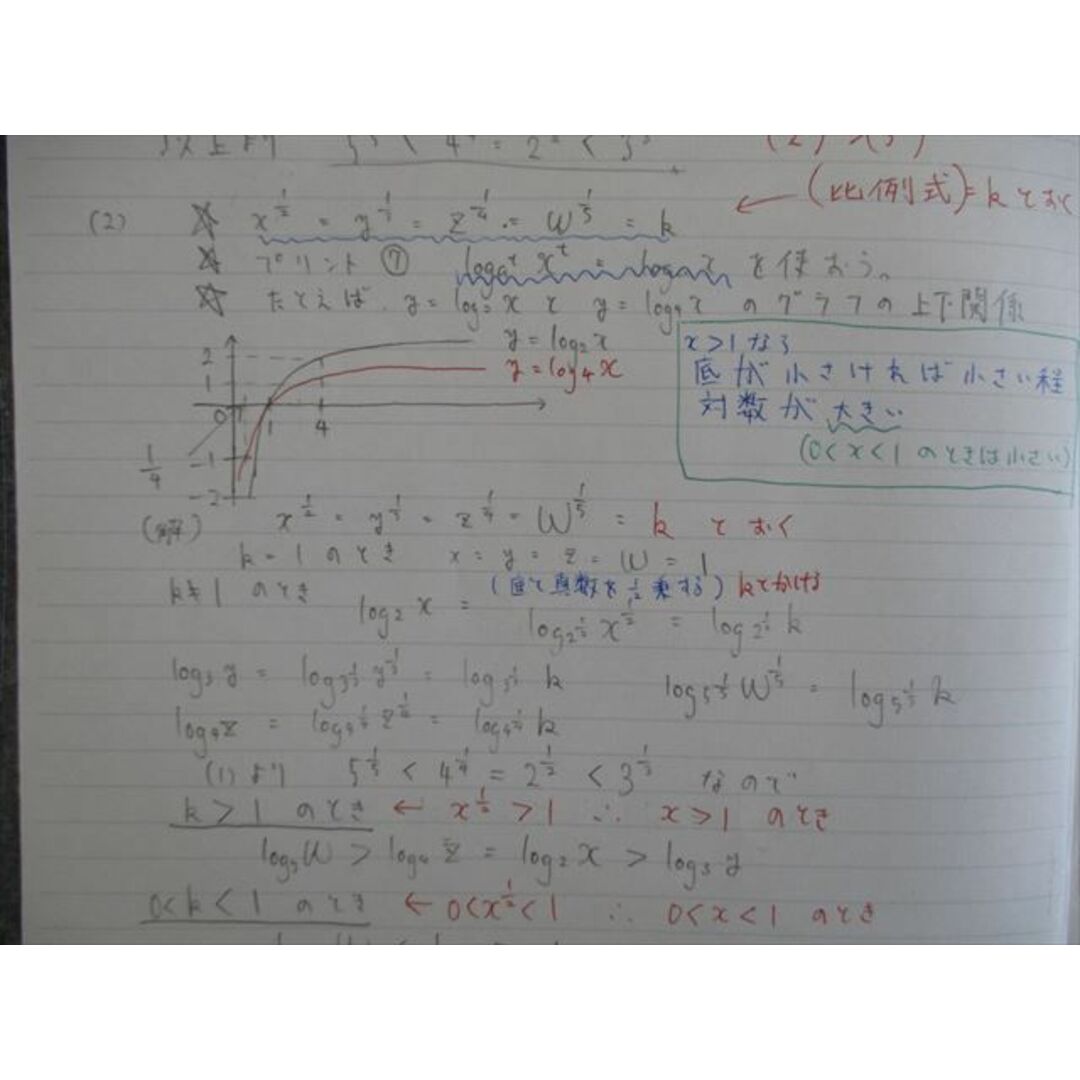 以上より 5^{1/5} < 4^{1/4} = 2^{1/2} < 3^{1/3}
(比例式)=kとおく
(2) ☆ x^{1/2} = y^{1/3} = z^{1/4} = w^{1/5} = k
☆ プリント⑦ log_{a^t} x^t = log_a x を使おう。
☆ たとえば、y = log_2 x と y = log_4 x のグラフの上下関係
y = log_2 x
y = log_4 x
2
1
0
1
4
1/4
-1
-2
x>1なら
底が小さければ小さい程
対数が大きい
(0<x<1のときは小さい)
(解) x^{1/2} = y^{1/3} = z^{1/4} = w^{1/5} = k とおく
k=1のとき x = y = z = w = 1
k≠1のとき (底と真数を1/2乗する) kとかける
log_2 x = log_{2^{1/2}} x^{1/2} = log_{2^{1/2}} k
log_3 y = log_{3^{1/3}} y^{1/3} = log_{3^{1/3}} k
log_{5^{1/5}} w^{1/5} = log_{5^{1/5}} k
log_4 z = log_{4^{1/4}} z^{1/4} = log_{4^{1/4}} k
(1)より 5^{1/5} < 4^{1/4} = 2^{1/2} < 3^{1/3} なので
k>1のとき ← x^{1/2} > 1 ∴ x>1のとき
log_5 w > log_4 z = log_2 x > log_3 y
0<k<1のとき ← 0<x^{1/2}<1 ∴ 0<x<1のとき